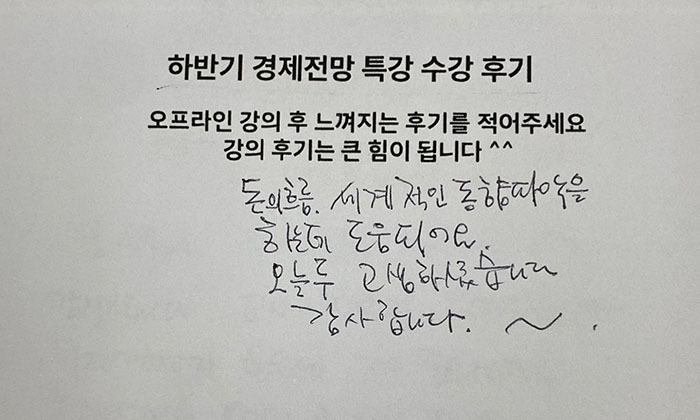 하반기 경제전망 특강 수강 후기
오프라인 강의 후 느껴지는 후기를 적어주세요
강의 후기는 큰 힘이 됩니다 ^^
돈의흐름. 세계적인 동향파악을
하는데 도움되어요.
오늘두 고생하셨습니다
감사합니다. ~ .